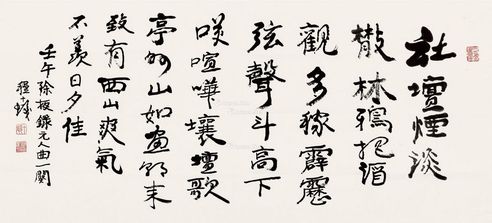 社壇煙淡
散林鴉把酒
觀多稼霹靂
弦聲斗高下
咲喧嘩壤壇歌
亭外山如畫朝来
致有西山爽氣
不羨日夕佳
壬午除錄元人曲一闋